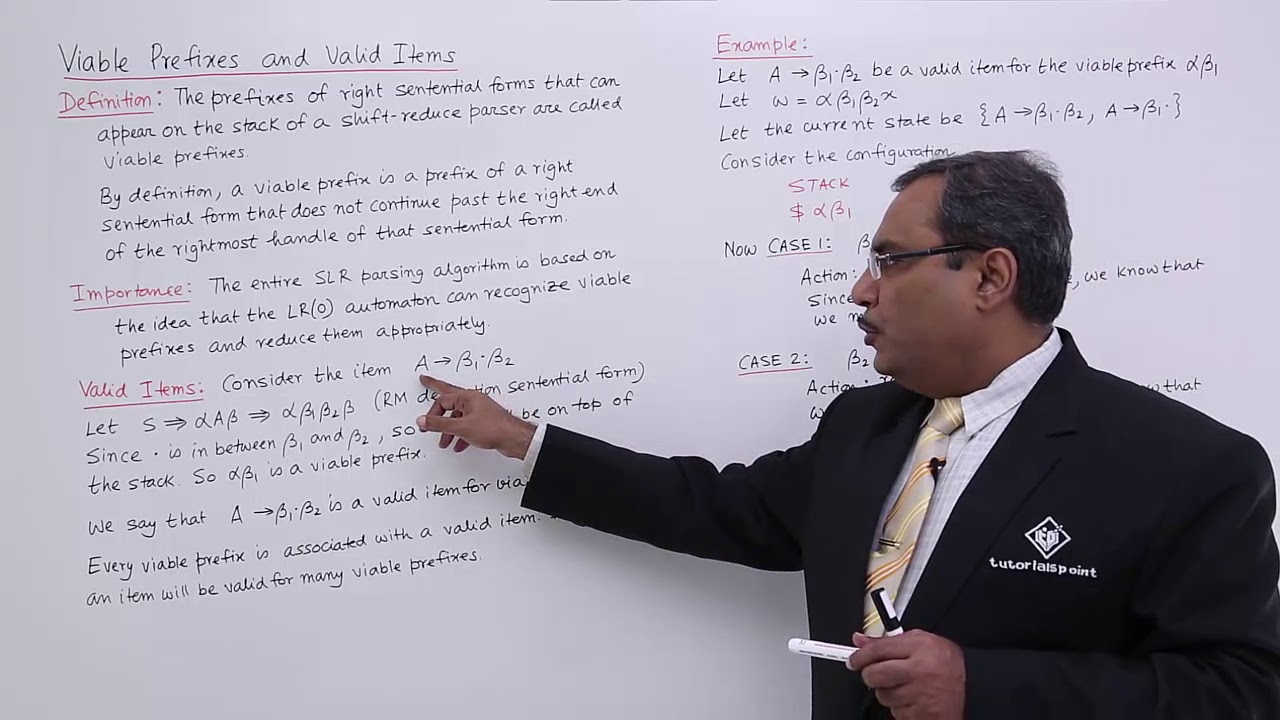 Viable Prefixes and Valid Items
Definition: The prefixes of right sentential forms that can
appear on the stack of a shift-reduce parser are called
viable prefixes.
By definition, a viable prefix is a prefix of a right
sentential form that does not continue past the right end
of the rightmost handle of that sentential form.
Importance: The entire SLR parsing algorithm is based on
the idea that the LR(0) automaton can recognize viable
prefixes and reduce them appropriately.
Valid Items: Consider the item A → β₁·β₂
Let S ⇒ αAβ ⇒ αβ₁β₂β (RM sentential form)
Since · is in between β₁ and β₂, so be on top of
the stack. So αβ₁ is a viable prefix.
We say that A → β₁·β₂ is a valid item for
Every viable prefix is associated with a valid item.
an item will be valid for many viable prefixes.
Example:
Let A → β₁·β₂ be a valid item for the viable prefix αβ₁
Let ω = αβ₁β₂x
Let the current state be {A → β₁·β₂, A → β₁·}
Consider the configuration
STACK
$ αβ₁
Now CASE 1:
Action: , we know that
Since
we
CASE 2: β₂
Action: that
tutorialspoint